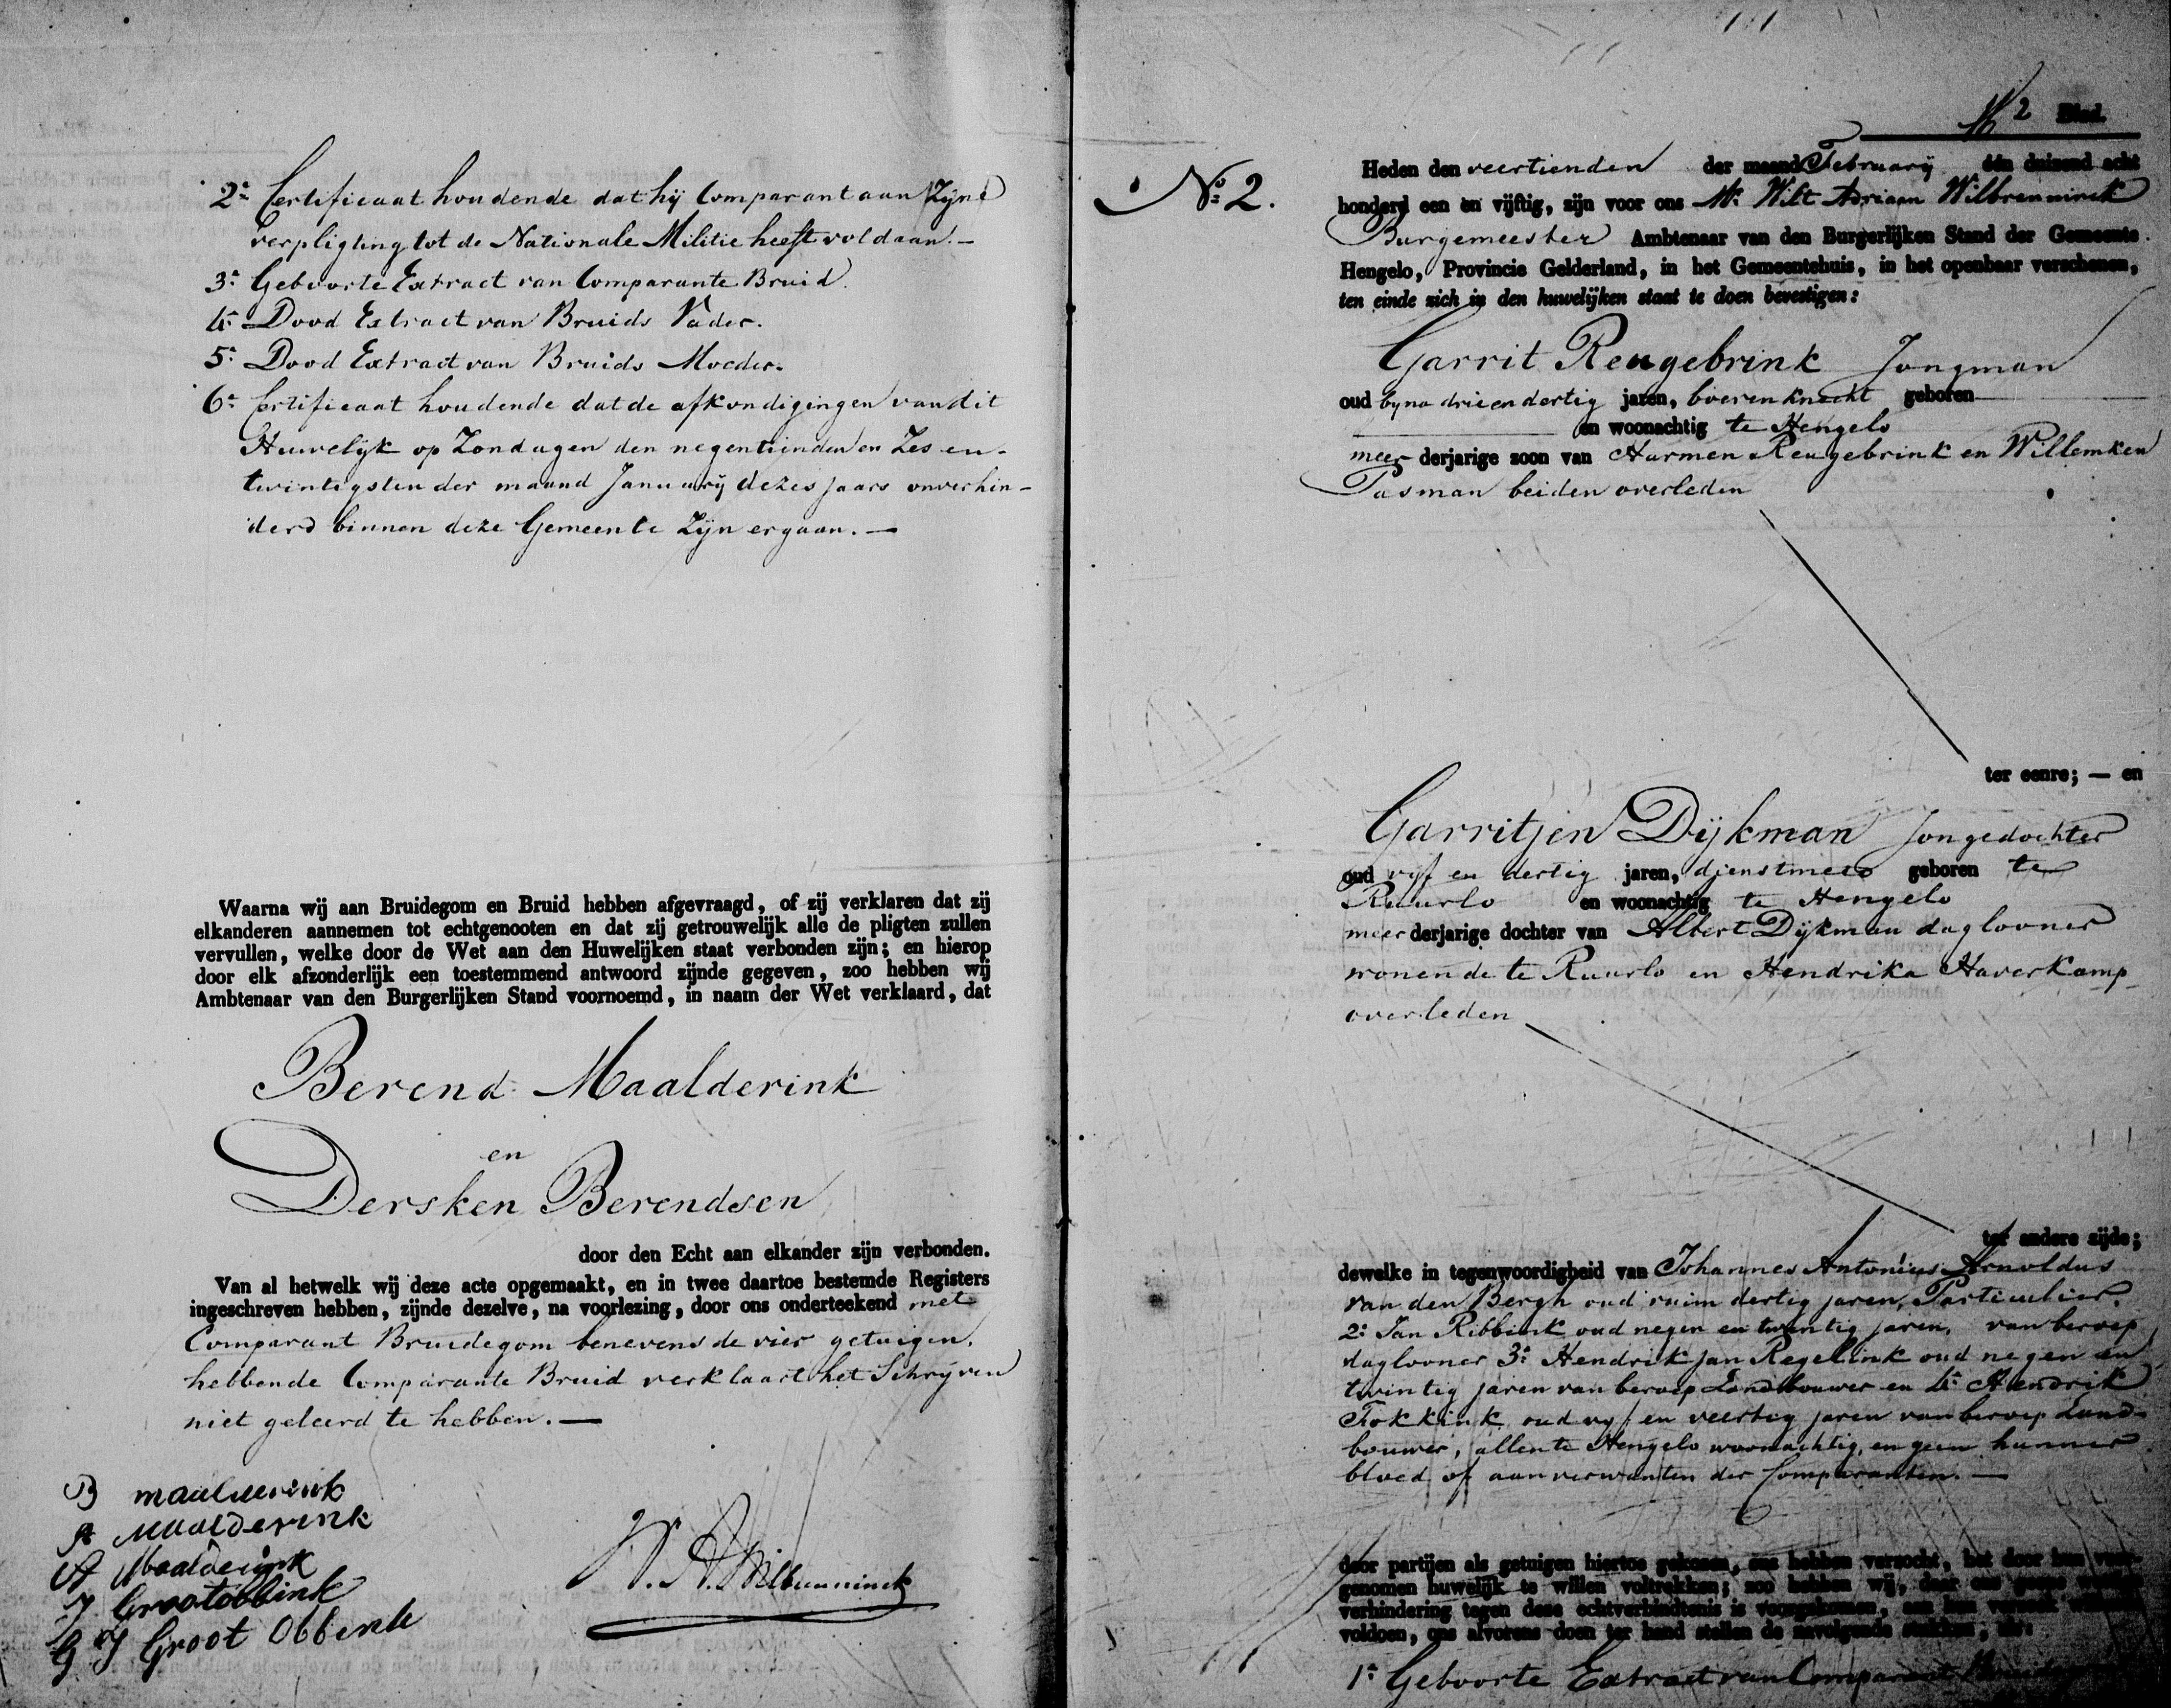 2e Certificaat houdende dat hij Comparant aan Zijne
verpligting tot de Nationale Militie heeft voldaan. —
3e Geboorte Extract van Comparante Bruid.
4e Dood Extract van Bruids Vader.
5e Dood Extract van Bruids Moeder.
6e Certificaat houdende dat de afkondigingen van dit
Huwelijk op Zondagen den negentienden en Zes en-
twintigsten der maand Januarij dezes jaars onverhin-
derd binnen deze Gemeente Zijn ergaan. —
Waarna wij aan Bruidegom en Bruid hebben afgevraagd, of zij verklaren dat zij
elkanderen aannemen tot echtgenooten en dat zij getrouwelijk alle de pligten zullen
vervullen, welke door de Wet aan den Huwelijken staat verbonden zijn; en hierop
door elk afzonderlijk een toestemmend antwoord zijnde gegeven, zoo hebben wij
Ambtenaar van den Burgerlijken Stand voornoemd, in naam der Wet verklaard, dat
Berend Maalderink
en
Dersken Berendsen
door den Echt aan elkander zijn verbonden.
Van al hetwelk wij deze acte opgemaakt, en in twee daartoe bestemde Registers
ingeschreven hebben, zijnde dezelve, na voorlezing, door ons onderteekend met
Comparant Bruidegom benevens de vier getuigen,
hebbende Comparante Bruid verklaart het Schrijven
niet geleerd te hebben. —
B maalderink
A Maalderink
A Maalderink
J Grootobbink
G J Groot Obbink
W. A. Wilbrenninck
2 Blad.
No. 2.
Heden den veertienden der maand February één duizend acht
honderd een en vijftig, zijn voor ons Mr. Wilt Adriaan Wilbrenninck
Burgemeester Ambtenaar van den Burgerlijken Stand der Gemeente
Hengelo, Provincie Gelderland, in het Gemeentehuis, in het openbaar verschenen,
ten einde zich in den huwelijken staat te doen bevestigen:
Garrit Reugebrink Jongman
oud byna drie en dertig jaren, boerenknecht geboren
en woonachtig te Hengelo
meerderjarige zoon van Harmen Reugebrink en Willemken
Pasman beiden overleden
ter eenre; — en
Garritjen Dijkman Jongedochter
oud vijf en dertig jaren, dienstmeid geboren te
Ruurlo en woonachtig te Hengelo
meerderjarige dochter van Albert Dijkman daglooner
wonende te Ruurlo en Hendrika Haverkamp
overleden
ter andere zijde;
dewelke in tegenwoordigheid van Johannes Antonius Arnoldus
van den Bergh oud ruim dertig jaren, Particulier,
2e Jan Ribbink oud negen en twintig jaren, van beroep
daglooner 3e Hendrik Jan Regelink oud negen en
twintig jaren van beroep Landbouwer en 4e Hendrik
Fokkink oud vijf en veertig jaren van beroep Land-
bouwer, allen te Hengelo woonachtig, en geen hunner
bloed of aanverwanten der Comparanten. —
door partijen als getuigen hiertoe gekozen, ons hebben verzocht, het door hun voor-
genomen huwelijk te willen voltrekken; zoo hebben wij, daar ons geene
verhindering tegen deze echtverbindtenis is voorgekomen, aan hun verzoek
voldoen, ons alvorens doen ter hand stellen de navolgende stukken, als:
1e Geboorte Extract van Comparant